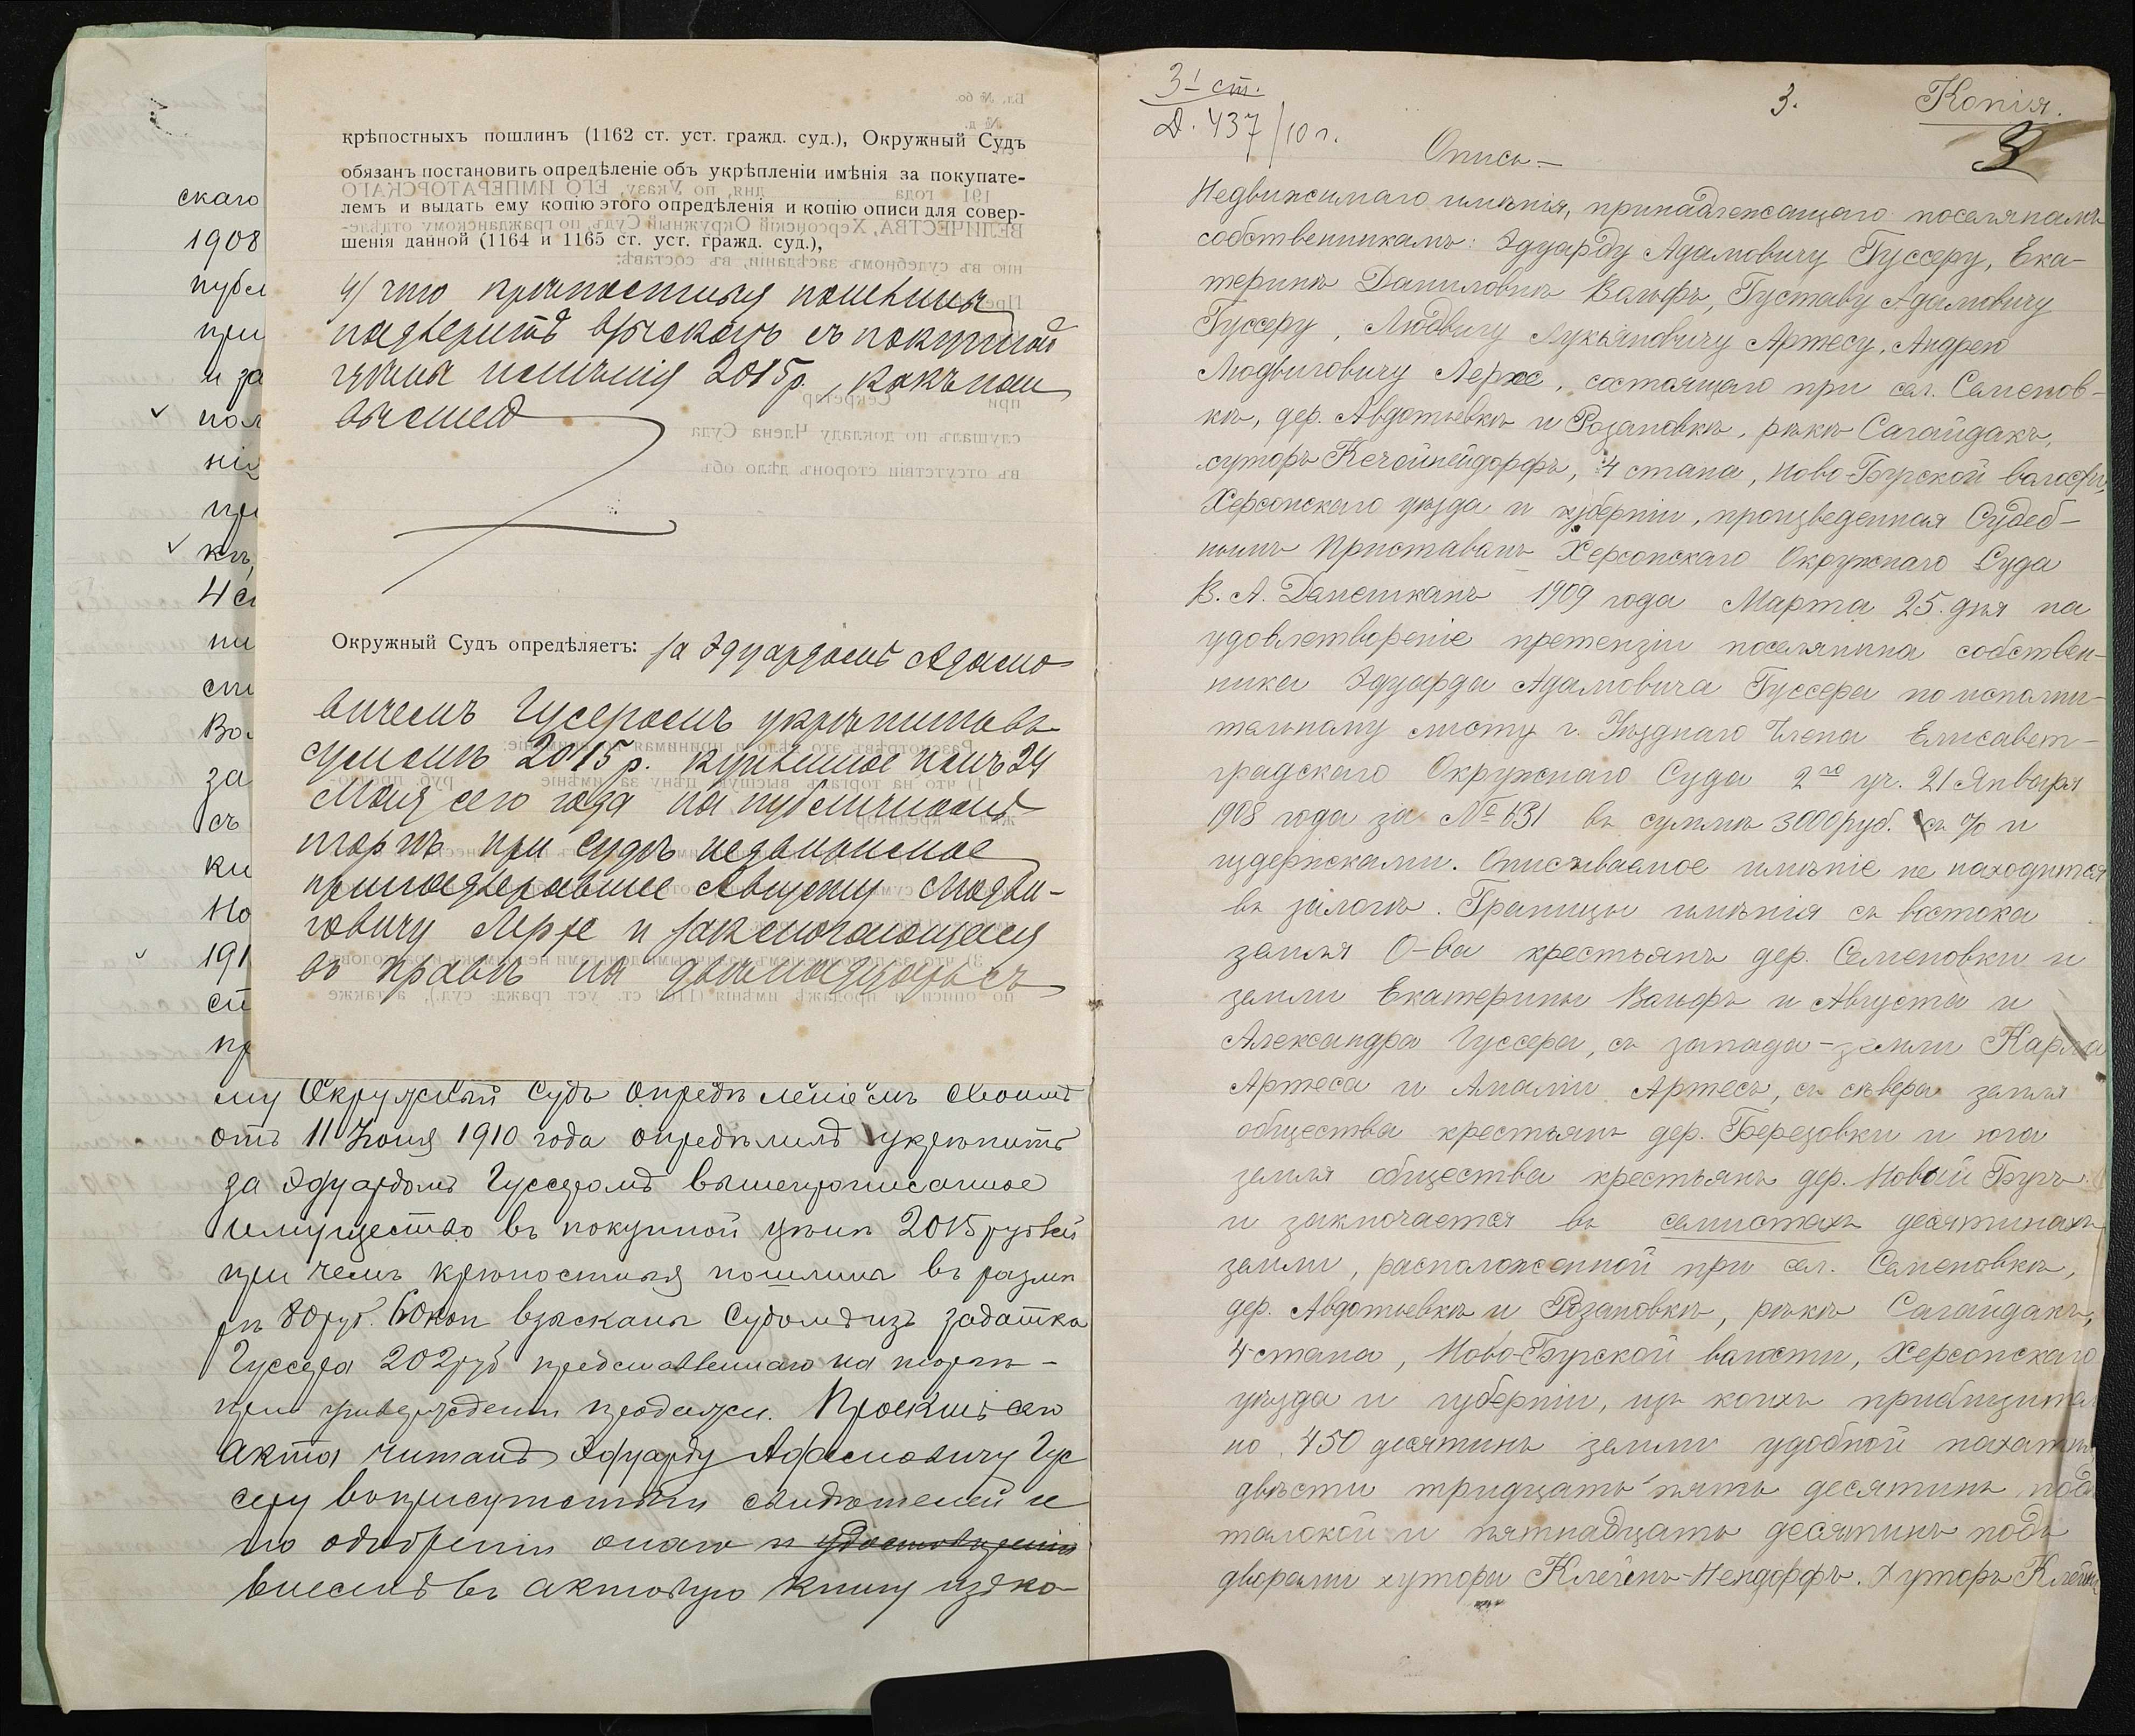 крѣпостныхъ пошлинъ (1162 ст. уст. гражд. суд.), Окружный Судъ
обязанъ постановить опредѣленіе объ укрѣпленіи имѣнія за покупате-
лемъ и выдать ему копію этого опредѣленія и копію описи для совер-
шенія данной (1164 и 1165 ст. уст. гражд. суд.),
4) что крѣпостныя пошлины
подлежитъ взысканъ съ покупной
цѣны имѣнія 2015 р., какъ наи
высшей
Окружный Судъ опредѣляетъ: за Эдуардомъ Адамо
вичемъ Гусеромъ укрѣпить въ
суммѣ 2015 р. купленное имъ 24
Мая сего года на публичномъ
торгѣ при Судѣ недвижимое
принадлежавшее Августу Людви-
говичу Лерхе и заключающееся
въ правѣ на двѣнадцать
скаго
1908
публ
при
и за
пол
ніе
при
кѣ,
4 с
ни
сти
Во
за
съ
ки
Но
191
ст
пр
му Окружный Судъ Опредѣленіемъ своимъ
отъ 11 Іюня 1910 года опредѣлилъ укрѣпить
за Эдуардомъ Гуссеромъ вышепрописанное
имущество въ покупной цѣнѣ 2015 рублей
при чемъ крѣпостныя пошлины въ размѣ
рѣ 80 руб. 60 коп взысканы Судомъ изъ задатка
Гуссера 202 руб представленнаго на торги
при утвержденіи продажи. Проектъ сего
акта читанъ Эдуарду Адамовичу Гус
серу въ присутствіи свидѣтелей и
по одобреніи онаго и удостовѣреніи
внесенъ въ актовую книгу изъ ко
3 ст.
Д. 437/10 г.
3.
Копія.
3
Опись
Недвижимаго имѣнія, принадлежащаго поселянамъ
собственникамъ: Эдуарду Адамовичу Гуссеру, Ека-
теринѣ Даниловнѣ Вольфъ, Густаву Адамовичу
Гуссеру, Людвигу Лукьяновичу Артесу, Андрею
Людвиговичу Лерхе, состоящаго при сел. Семенов-
кѣ, дер. Авдотьевкѣ и Розановкѣ, рѣкѣ Сагайдакъ,
хуторъ, 4 стана, Ново-Бугской волости,
Херсонскаго уѣзда и губерніи, произведенная Судеб-
нымъ Приставомъ Херсонскаго Окружнаго Суда
В. А. 1909 года Марта 25. дня на
удовлетвореніе претензіи поселянина собствен-
ника Эдуарда Адамовича Гуссера по исполни-
тельному листу г. Уѣзднаго Члена Елисавет-
градскаго Окружнаго Суда 2го уч. 21 Января
1908 года за № 631 въ суммѣ 3000 руб. съ % и
издержками. Описываемое имѣніе не находится
въ залогѣ. Границы имѣнія съ востока
земля О-ва крестьянъ дер. Семеновки и
земли Екатерины Вольфъ и Августа и
Александра Гуссера, съ запада - земли Карла
Артеса и Амаліи Артесъ, съ сѣвера земля
общества крестьянъ дер. Березовки и юга
земля общества крестьянъ дер. Новой Бугъ
и заключается въ семистахъ десятинахъ
земли, расположенной при сел. Семеновкѣ,
дер. Авдотьевкѣ и Розановкѣ, рѣкѣ Сагайдакъ,
4 стана, Ново-Бугской волости, Херсонскаго
уѣзда и губерніи, изъ коихъ приблизитель
но 450 десятинъ земли удобной пахатн
двѣсти тридцать пять десятинъ подъ
толокой и пятнадцать десятинъ подъ
дворами хутора Клейнъ-Нендорфъ. Хуторъ Клейнъ